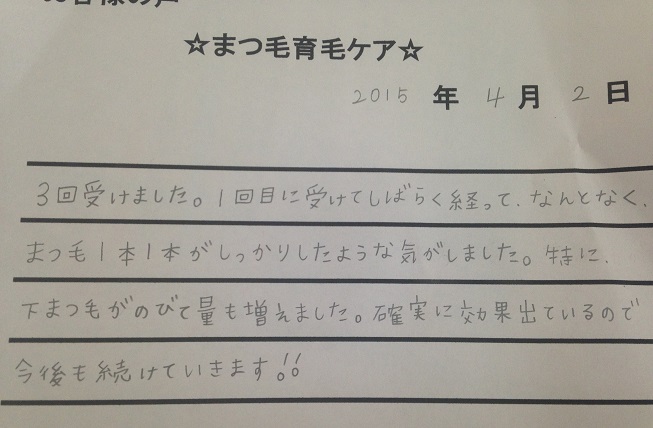 お客様の声
☆まつ毛育毛ケア☆
2015 年 4 月 2 日
3回受けました。1回目に受けてしばらく経って、なんとなく、
まつ毛1本1本がしっかりしたような気がしました。特に、
下まつ毛がのびて量も増えました。確実に効果出ているので
今後も続けていきます!!